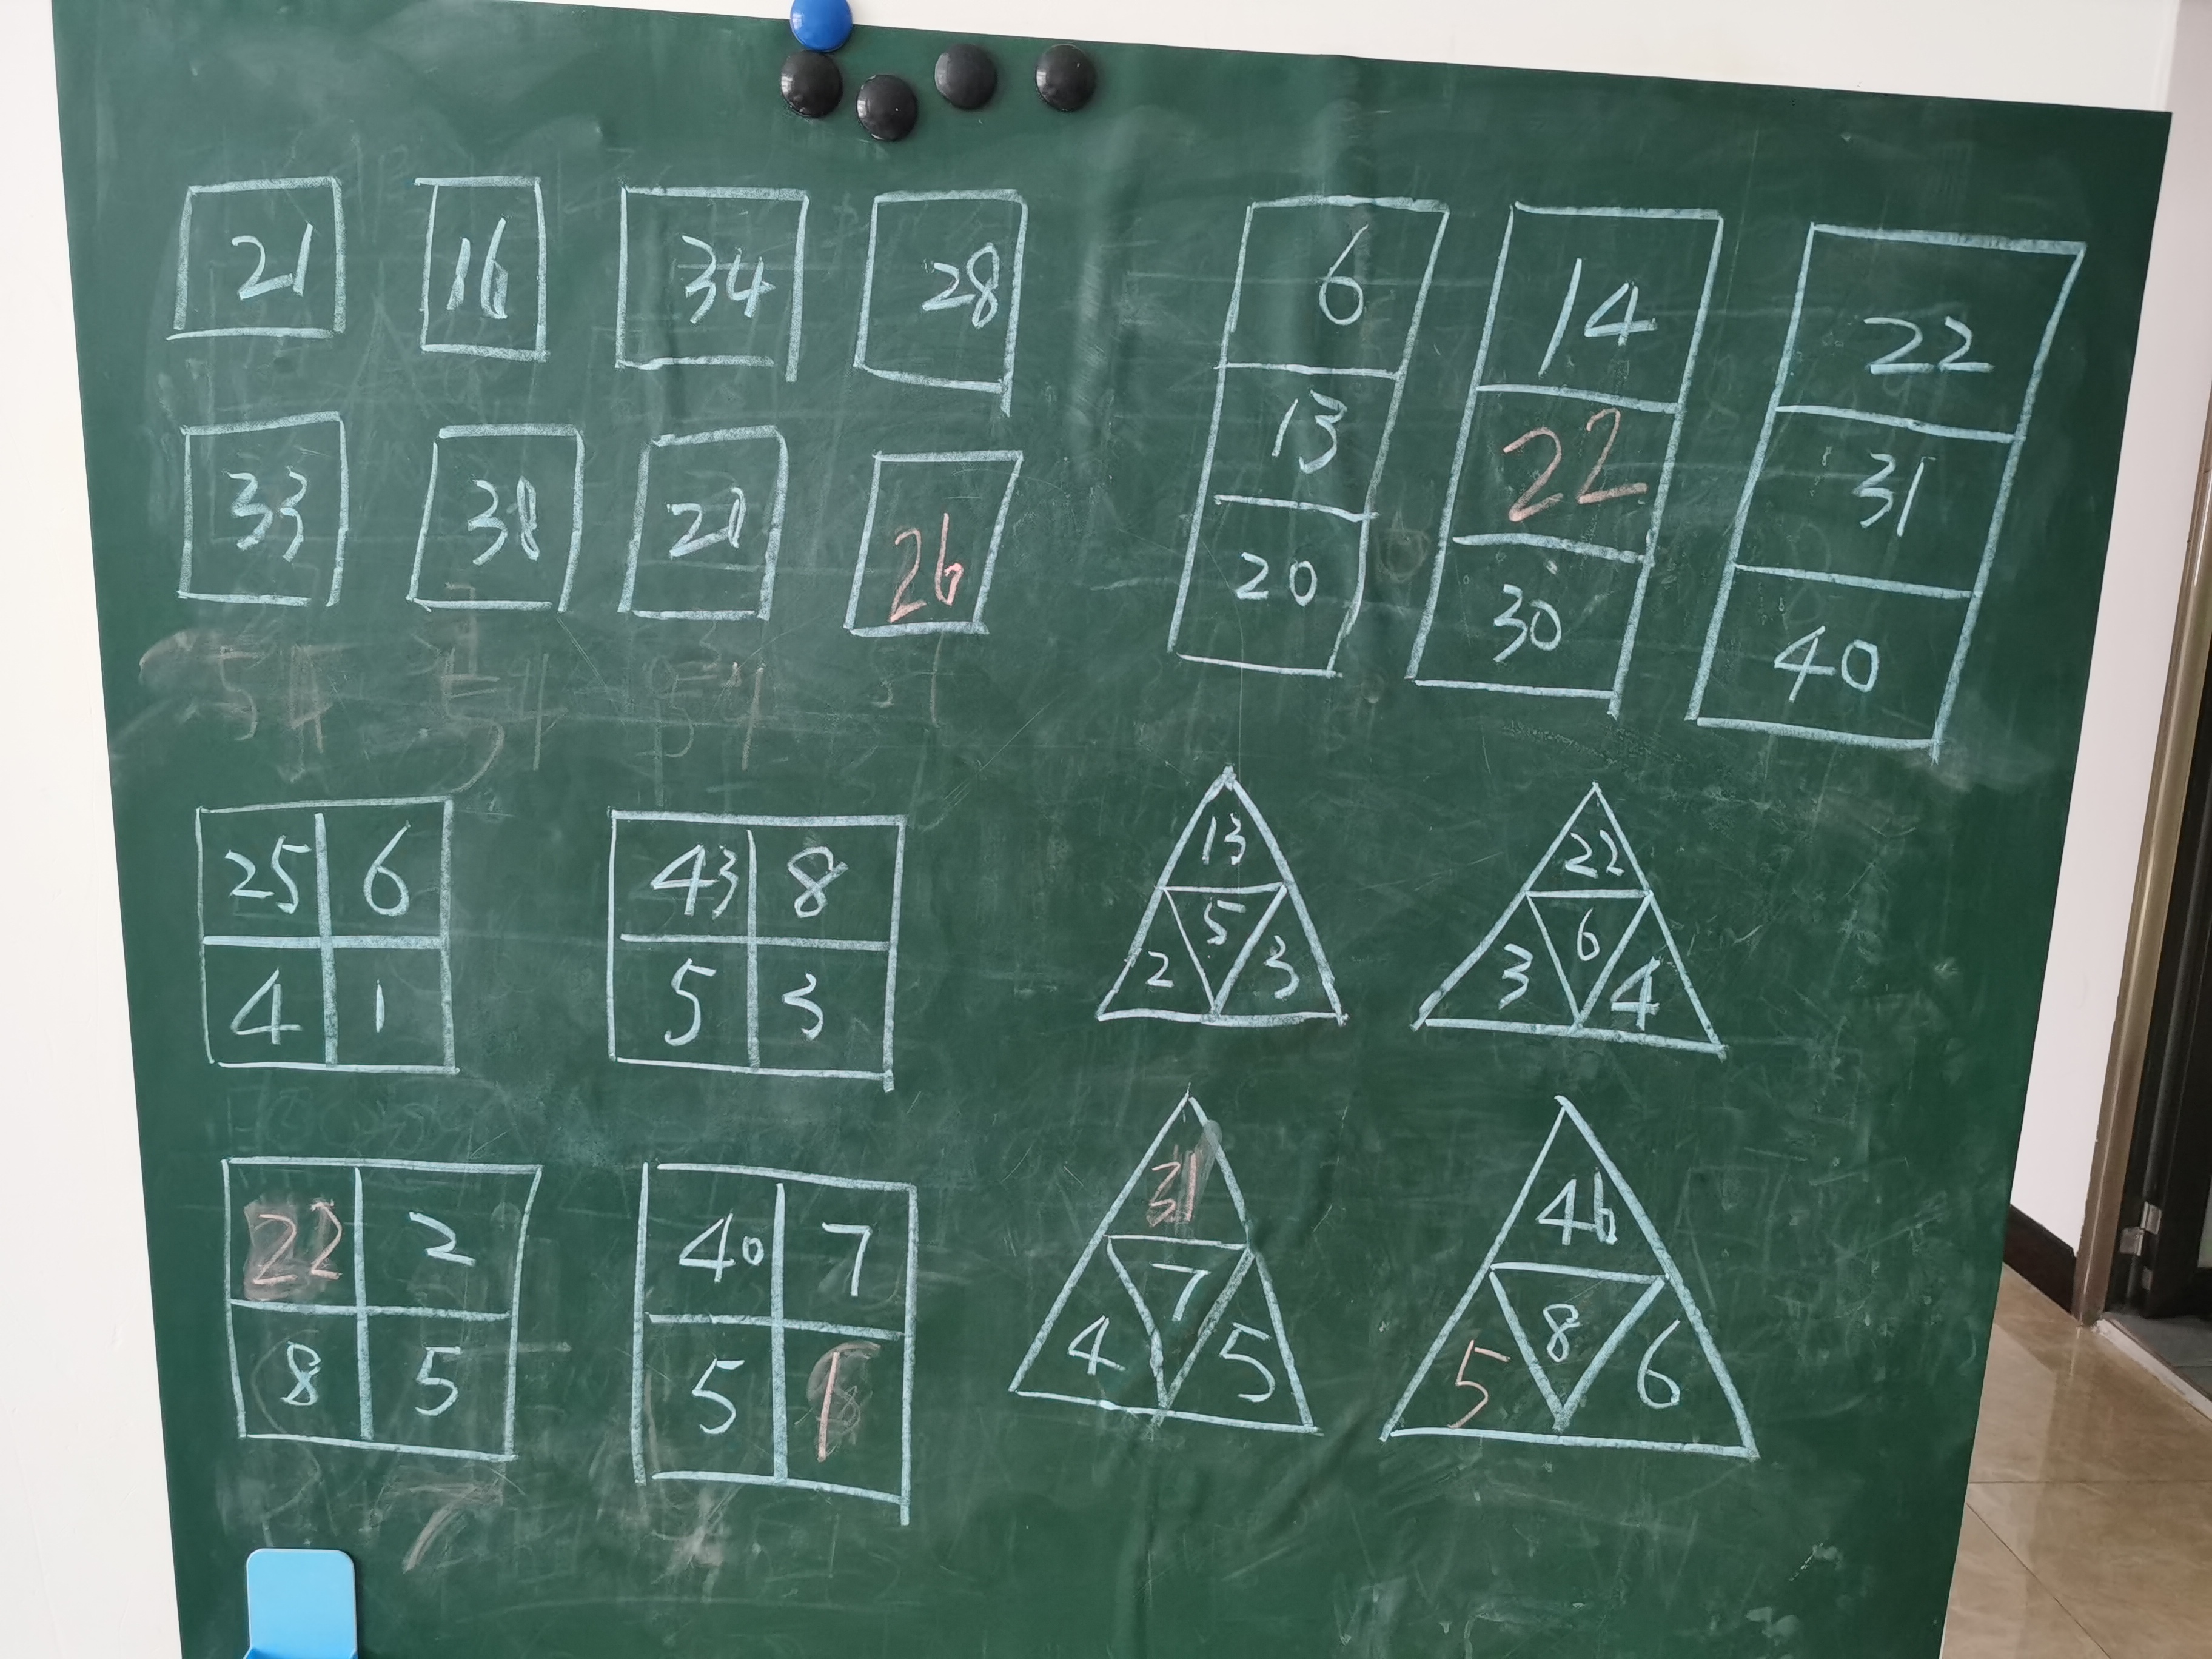 21 16 34 28
33 38 20 26
54 54 54
6 14 22
13 22 31
20 30 40
25 6 43 8
4 1 5 3
13 22
5 6
2 3 3 4
22 2 40 7
8 5 5 1
31 46
7 8
4 5 5 6